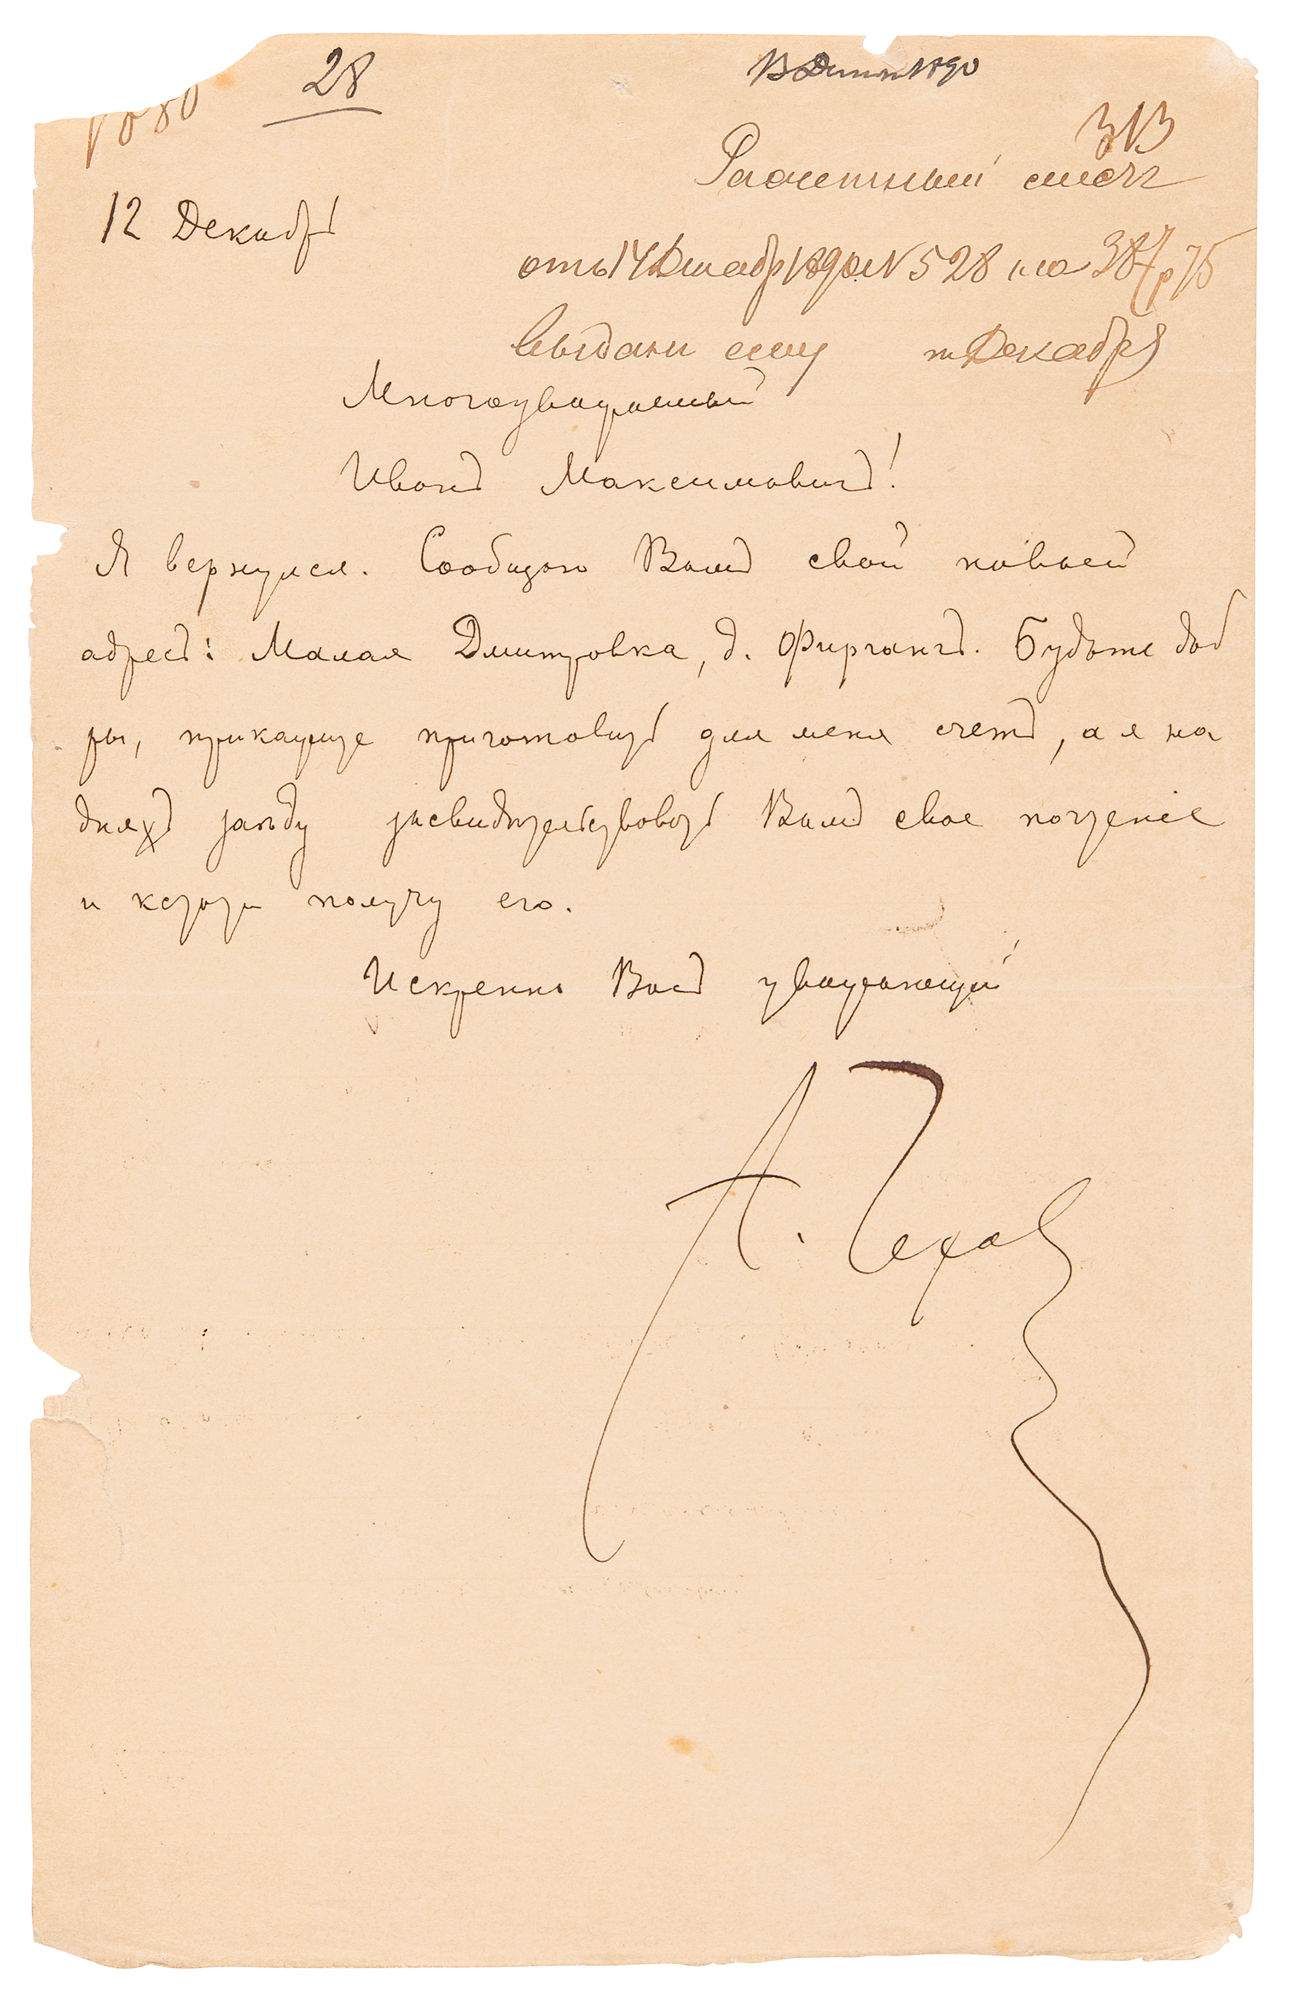 28
313
12 Декабрь
отъ 14 Декабр 1890 № 528 на 387 р 75
выданъ ему Декабря
Многоуважаемый
Иванъ Максимовичъ!
Я вернулся. Сообщаю Вамъ свой новый
адресъ: Малая Дмитровка, д. Фиргангъ. Будьте доб
ры, прикажите приготовить для меня счетъ, а я на
дняхъ заѣду засвидѣтельствовать Вамъ свое почтеніе
и кстати получу его.
Искренно Васъ уважающій
А. Чехов